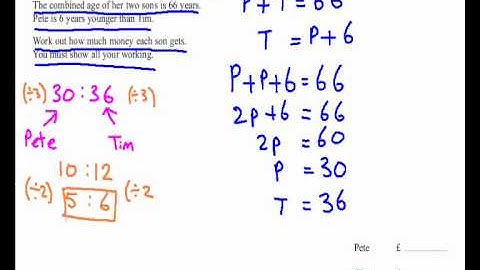 The combined age of her two sons is 66 years.
Pete is 6 years younger than Tim.
Work out how much money each son gets.
You must show all your working.
(÷3) 30 : 36 (÷3)
Pete Tim
10 : 12
(÷2) 5 : 6 (÷2
P + T = 66
T = P + 6
P + P + 6 = 66
2P + 6 = 66
2P = 60
P = 30
T = 36
Pete £